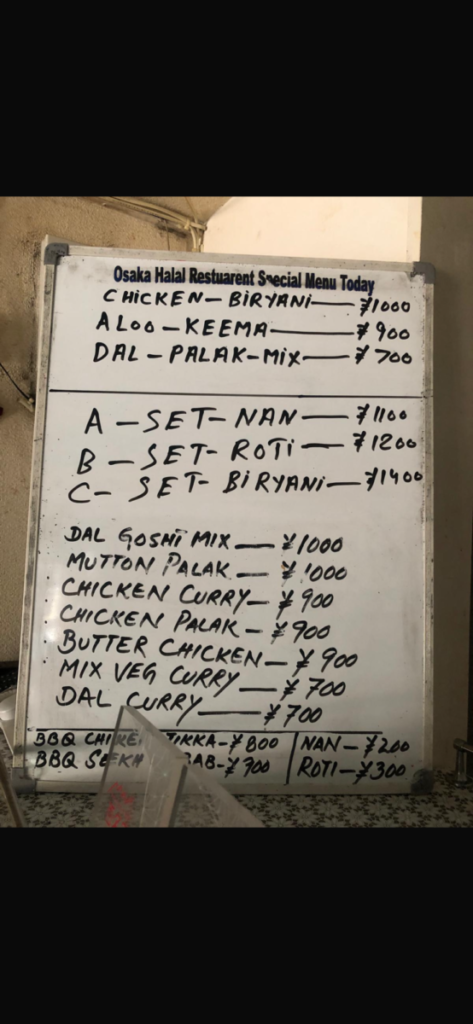 Osaka Halal Restuarent Special Menu Today
CHICKEN-BIRYANI—¥1000
ALOO-KEEMA—¥900
DAL-PALAK-MIX—¥700
A-SET-NAN—¥1100
B-SET-ROTI—¥1200
C-SET-BIRYANI—¥1400
DAL GOSHT MIX—¥1000
MUTTON PALAK—¥1000
CHICKEN CURRY-¥900
CHICKEN PALAK-¥900
BUTTER CHICKEN-¥900
MIX VEG CURRY—¥700
DAL CURRY—¥700
BBQ TIKKA-¥800
BBQ ¥700
NAN-¥200
ROTI-¥300